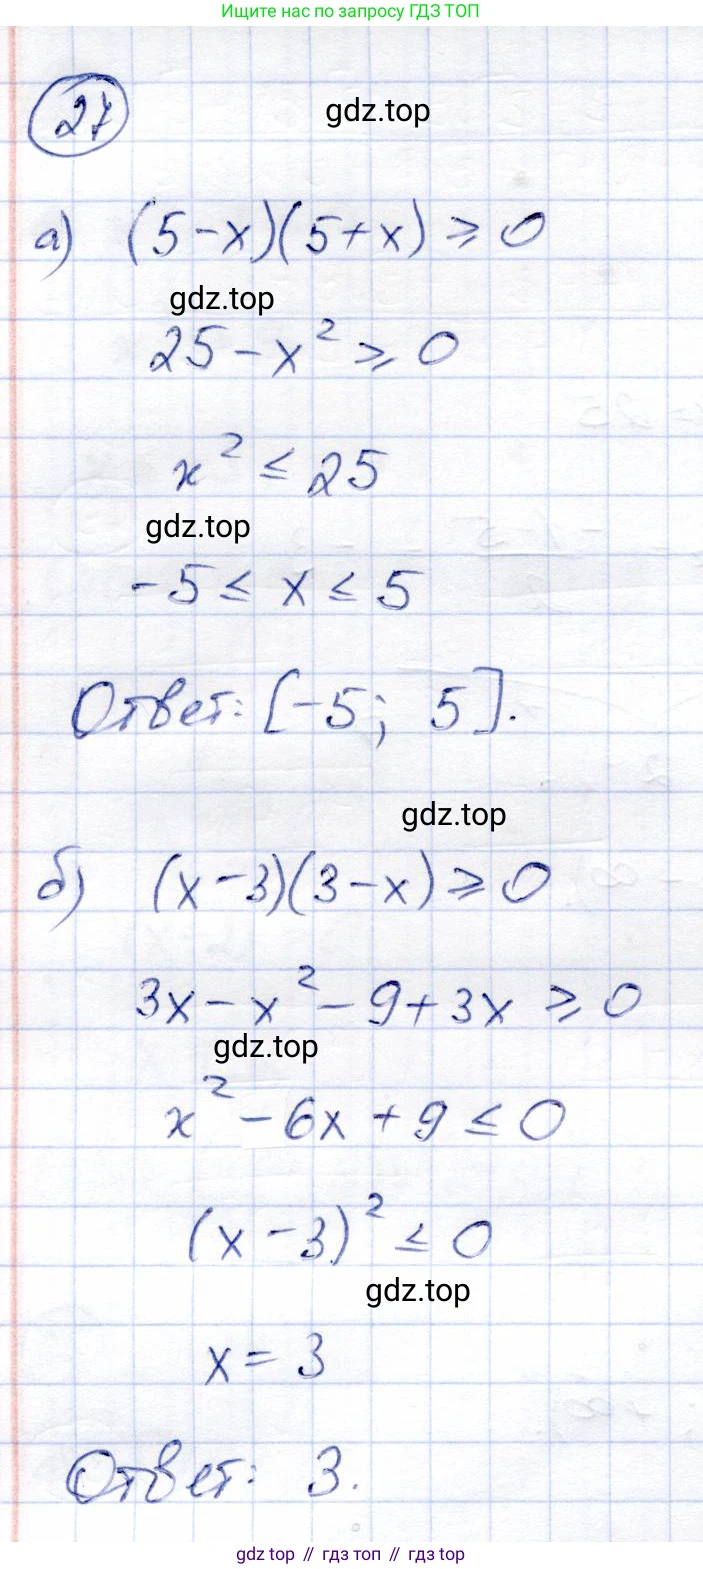 Ищите нас по запросу ГДЗ ТОП
27
gdz.top
а) (5-x)(5+x) ⩾ 0
gdz.top
25-x² ⩾ 0
x² ≤ 25
gdz.top
-5 ≤ x ≤ 5
Ответ: [-5; 5].
gdz.top
б) (x-3)(3-x) ⩾ 0
3x - x² - 9 + 3x ⩾ 0
gdz.top
x² - 6x + 9 ≤ 0
(x-3)² ≤ 0
gdz.top
x = 3
Ответ: 3.
gdz top // гдз топ // gdz.top